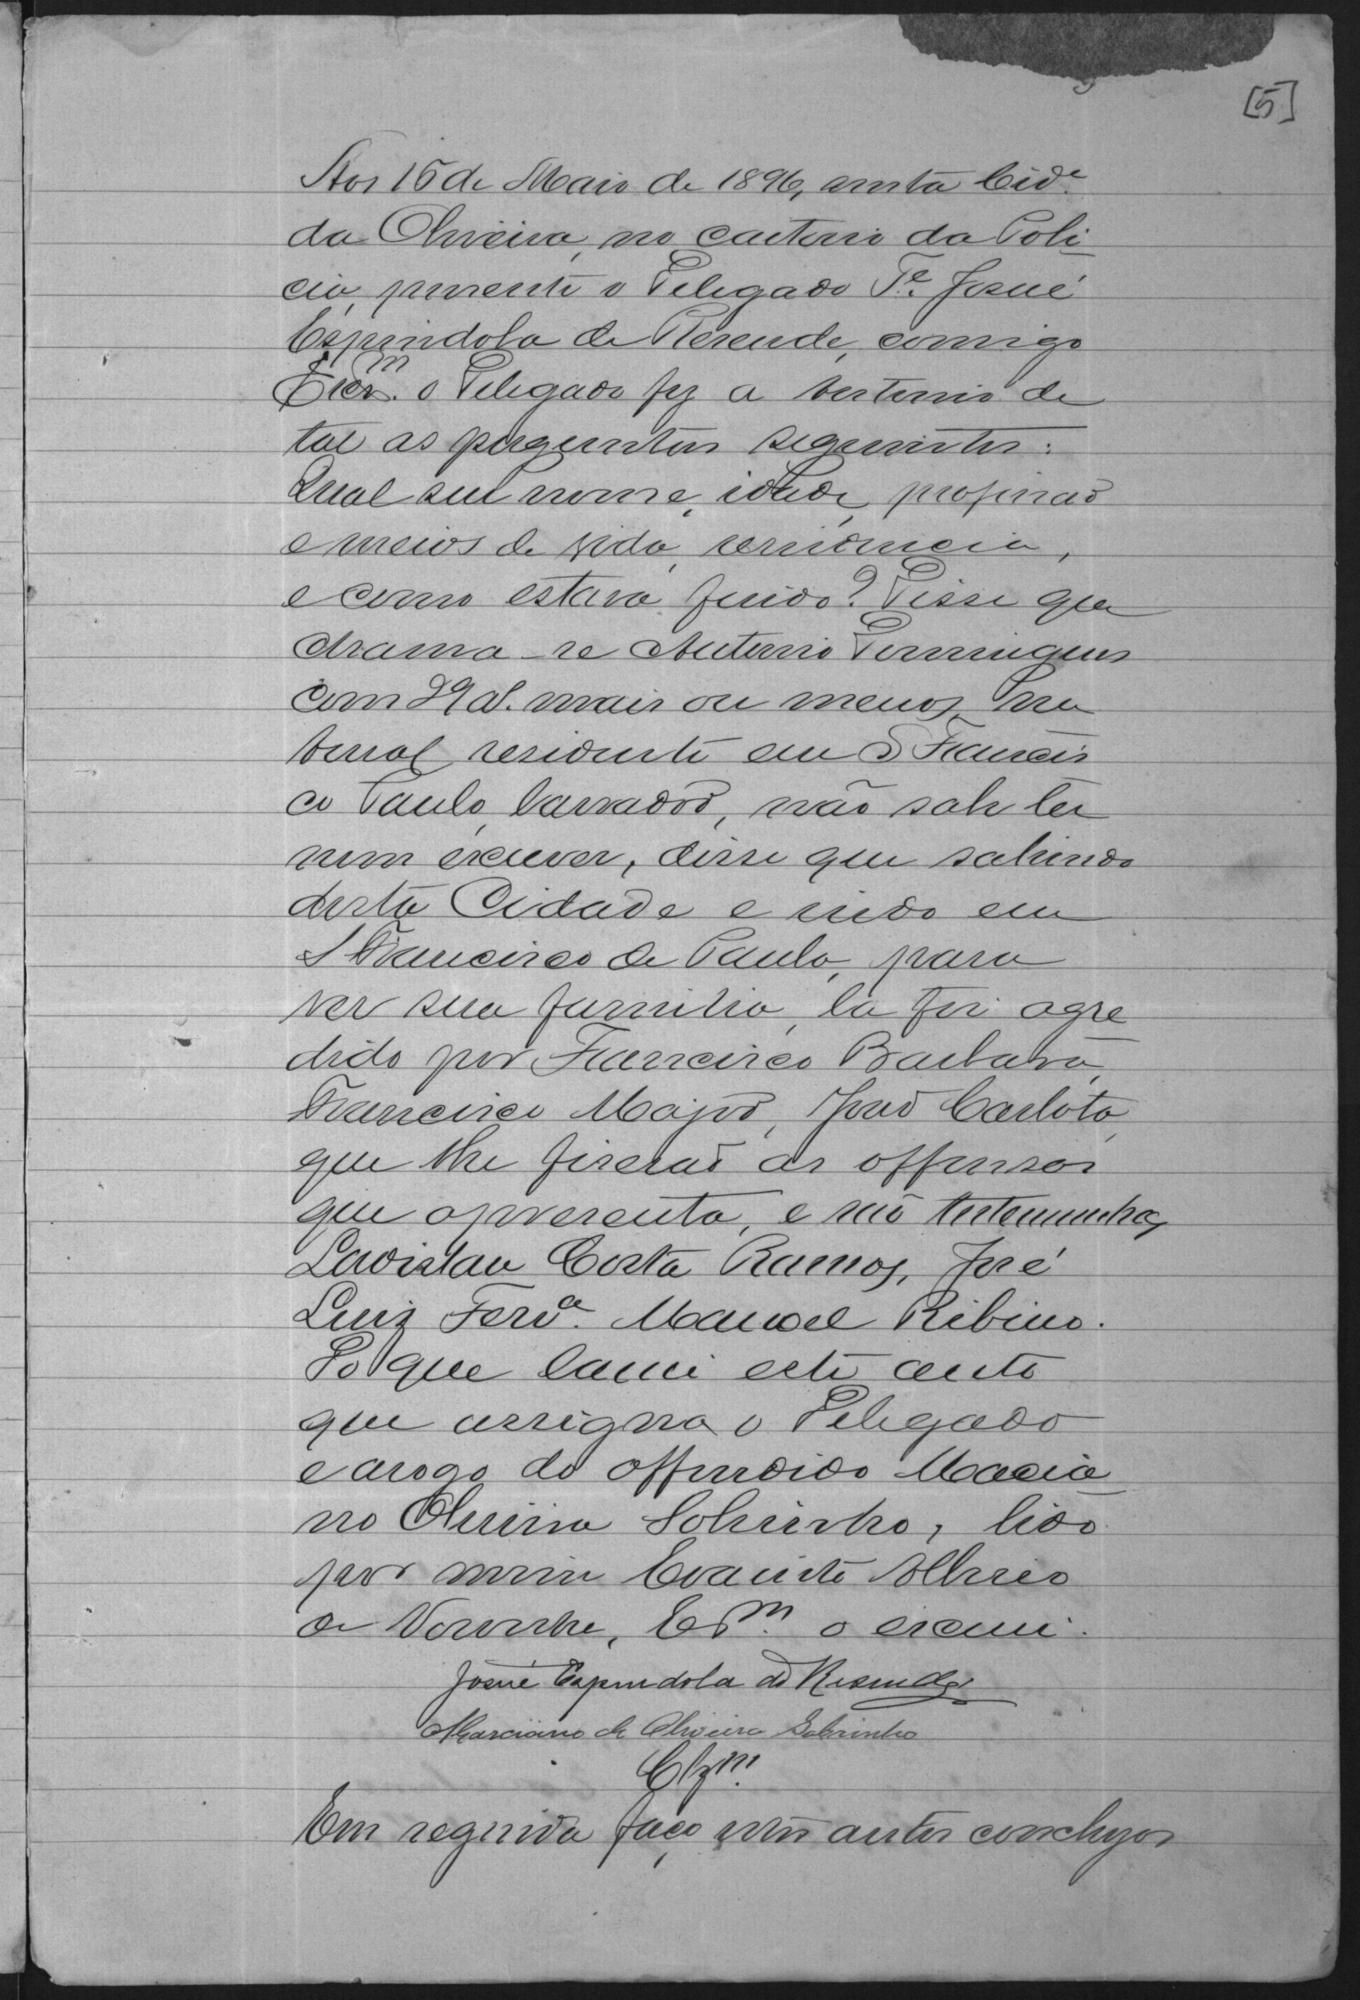 [5]
Aos 15 de Maio de 1896, nesta Cid.e
da Oliveira, no cartorio da Poli
cia, presente o Delegado T.e Josué
Espindola de Resende, comigo
Escr.m o Delegado fez a
tal as perguntas seguintes:
Qual seu nome, idade, profissão
e meios de vida, residencia,
e como estava ferido? Disse que
chama-se Antonio Domingues
com 29 a. mais ou menos, na
tural residente em S Francis
co Paulo, lavrador, não sabe ler
nem escrever, disse que sahindo
desta Cidade e indo em
S Francisco de Paula, para
ver sua familia, la foi agre
dido por Francisco Barbara,
Francisco Major, João Carlota,
que lhe fiserão as offensas
que apresenta, e são testemunhas
Ladislau Costa Ramos, José
Luiz Ferr.a Manoel Ribeiro.
Do que lavrei este auto
que assigna o Delegado
e arogo do offendido Marcia
no Oliveira Sobrinho, lido
por mim Evaristo Alberico
de Noronha, E m o escrevi.
Josué Espindola de Resende
Marciano de Oliveira Sobrinho
Clz.m
Em seguida faço estes autos conclusos